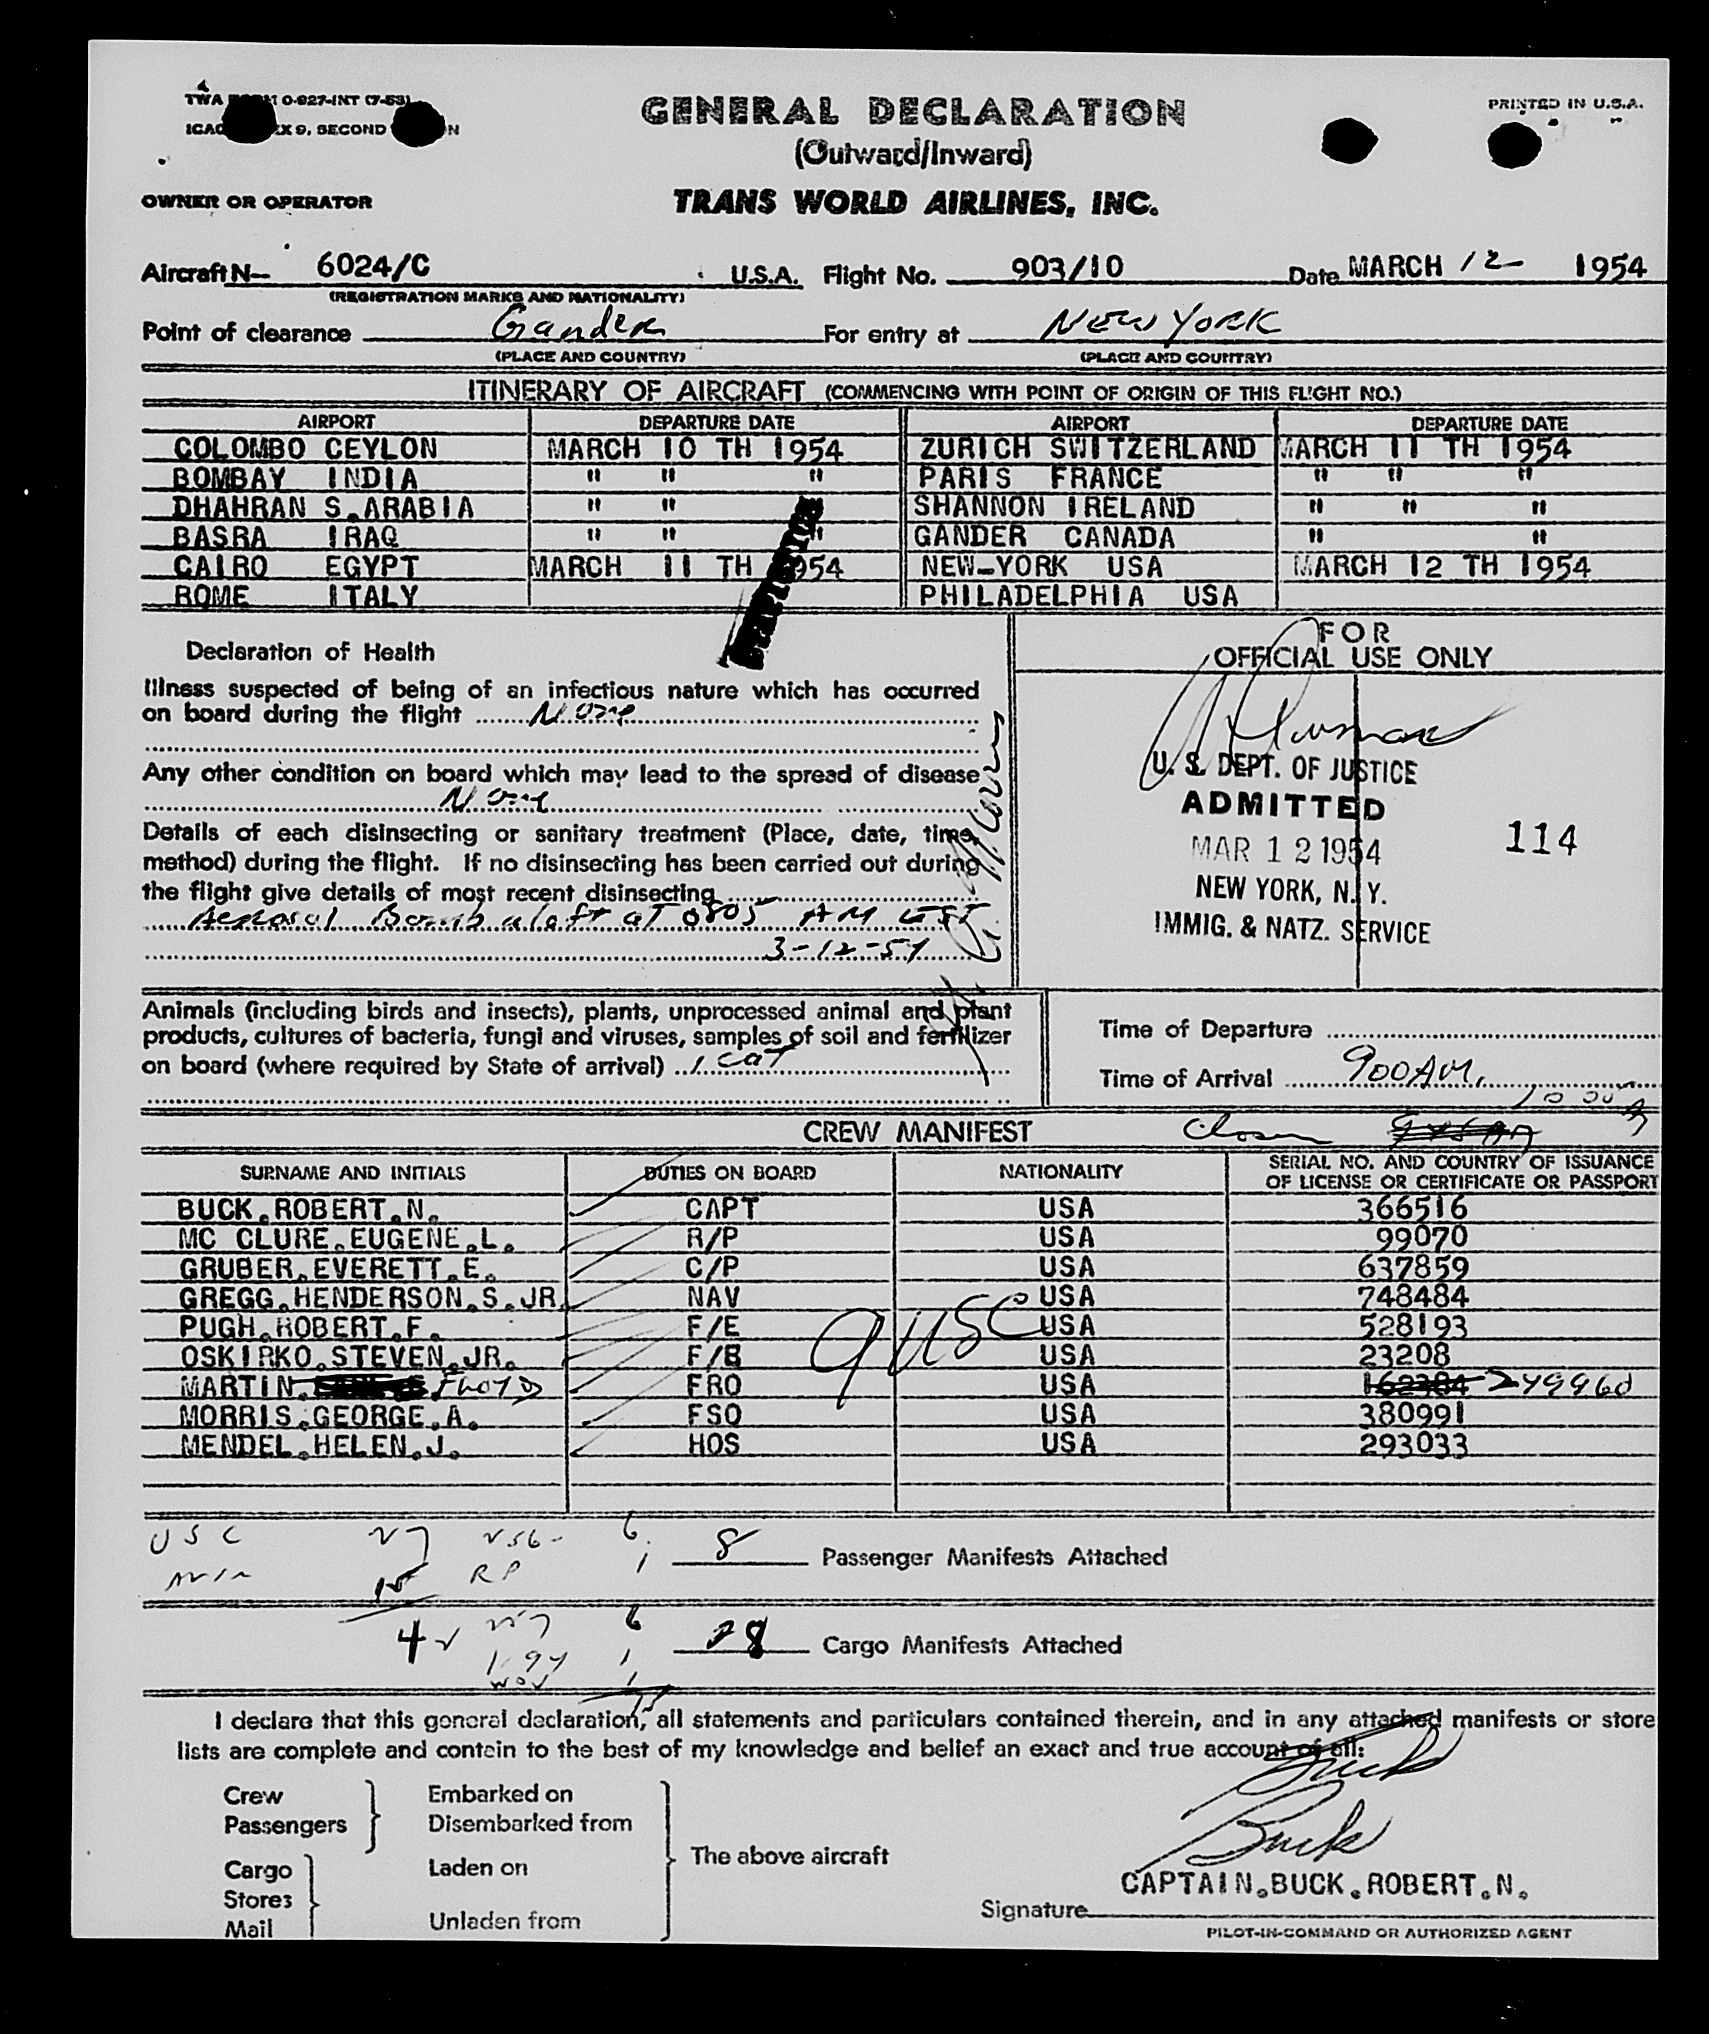 TWA 0-927-INT (7-53)
PRINTED IN U.S.A.
GENERAL DECLARATION
(Outward/Inward)
OWNER OR OPERATOR TRANS WORLD AIRLINES, INC.
Aircraft N— 6024/C U.S.A. Flight No. 903/10 Date MARCH 12- 1954
(REGISTRATION MARKS AND NATIONALITY)
Point of clearance Gander For entry at NEW YORK
(PLACE AND COUNTRY) (PLACE AND COUNTRY)
ITINERARY OF AIRCRAFT (COMMENCING WITH POINT OF ORIGIN OF THIS FLIGHT NO.)
AIRPORT DEPARTURE DATE AIRPORT DEPARTURE DATE
COLOMBO CEYLON MARCH 10 TH 1954 ZURICH SWITZERLAND MARCH 11 TH 1954
BOMBAY INDIA " " " PARIS FRANCE " " "
DHAHRAN S.ARABIA " " SHANNON IRELAND " " "
BASRA IRAQ " " " GANDER CANADA " "
CAIRO EGYPT MARCH 11 TH 1954 NEW-YORK USA MARCH 12 TH 1954
ROME ITALY PHILADELPHIA USA
Declaration of Health
FOR
OFFICIAL USE ONLY
Illness suspected of being of an infectious nature which has occurred
on board during the flight None
Any other condition on board which may lead to the spread of disease
None
Details of each disinsecting or sanitary treatment (Place, date, time,
method) during the flight. If no disinsecting has been carried out during
the flight give details of most recent disinsecting
Aerosol Bomb aloft at 0805 AM EST
3-12-54
U. S. DEPT. OF JUSTICE
ADMITTED
MAR 12 1954
NEW YORK, N. Y.
IMMIG. & NATZ. SERVICE
114
Animals (including birds and insects), plants, unprocessed animal and plant
products, cultures of bacteria, fungi and viruses, samples of soil and fertilizer
on board (where required by State of arrival) 1 cat
Time of Departure
Time of Arrival 900 AM.
CREW MANIFEST
SURNAME AND INITIALS DUTIES ON BOARD NATIONALITY SERIAL NO. AND COUNTRY OF ISSUANCE
OF LICENSE OR CERTIFICATE OR PASSPORT
BUCK.ROBERT.N. CAPT USA 366516
MC CLURE.EUGENE.L. R/P USA 99070
GRUBER.EVERETT.E. C/P USA 637859
GREGG.HENDERSON.S.JR. NAV USA 748484
PUGH.ROBERT.F. F/E USA 528193
OSKIRKO.STEVEN.JR. F/E USA 23208
MARTIN. FLOYD FRO USA 162384 249960
MORRIS.GEORGE.A. FSO USA 380991
MENDEL.HELEN.J. HOS USA 293033
9 USC
USC 27 6
RP 1
8 Passenger Manifests Attached
42 6
28 Cargo Manifests Attached
I declare that this general declaration, all statements and particulars contained therein, and in any attached manifests or store
lists are complete and contain to the best of my knowledge and belief an exact and true account of all:
Crew
Passengers
Embarked on
Disembarked from
Cargo
Stores
Mail
Laden on
Unladen from
The above aircraft
Buck
Buck
CAPTAIN.BUCK.ROBERT.N.
Signature
PILOT-IN-COMMAND OR AUTHORIZED AGENT